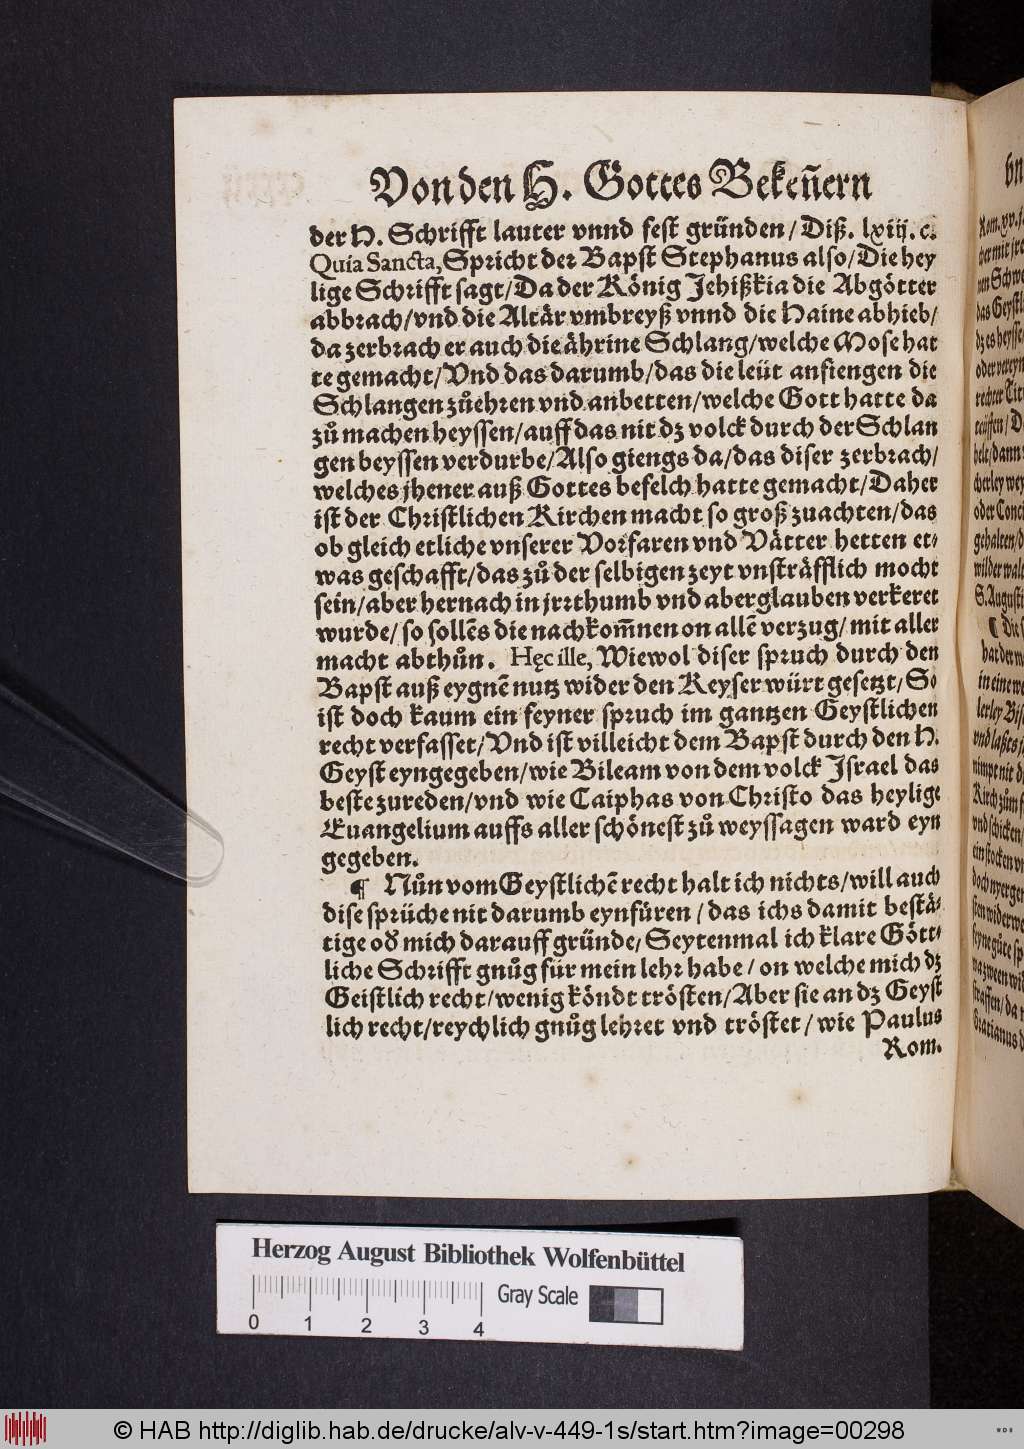 Von den H. Gottes Bekeñern
der H. Schrifft lauter vnnd fest gründen/ Diß. lxiij. c.
Quia Sancta, Spricht der Bapst Stephanus also/ Die hey
lige Schrifft sagt/ Da der König Jehißkia die Abgötter
abbrach/ vnd die Altär vmbreyß vnnd die Haine abhieb/
da zerbrach er auch die ährine Schlang/ welche Mose hat
te gemacht/ Vnd das darumb/ das die leüt anfiengen die
Schlangen zů ehren vnd anbetten/ welche Gott hatte da
zů machen heyssen/ auff das nit dz volck durch der Schlan
gen beyssen verdurbe/ Also giengs da/ das diser zerbrach/
welches jhener auß Gottes befelch hatte gemacht/ Daher
ist der Christlichen Kirchen macht so groß zuachten/ das
ob gleich etliche vnserer Vorfaren vnd Vätter hetten et⸗
was geschafft/ das zů der selbigen zeyt vnsträfflich mocht
sein/ aber hernach in jrrthumb vnd aberglauben verkeret
wurde/ so sollẽs die nachkom̃nen on allẽ verzug/ mit aller
macht abthůn. Hęc ille, Wiewol diser spruch durch den
Bapst auß eygnẽ nutz wider den Keyser würt gesetzt/ So
ist doch kaum ein feyner spruch im gantzen Geystlichen
recht verfasset/ Vnd ist villeicht dem Bapst durch den H.
Geyst eyngegeben/ wie Bileam von dem volck Jsrael das
beste zureden/ vnd wie Caiphas von Christo das heylige
Euangelium auffs aller schönest zů weyssagen ward eyn
gegeben.
¶ Nůn vom Geystlichẽ recht halt ich nichts/ will auch
dise sprüche nit darumb eynfüren/ das ichs damit bestä⸗
tige oď mich darauff gründe/ Seytenmal ich klare Gött⸗
liche Schrifft gnůg für mein lehr habe/ on welche mich dz
Geistlich recht/ wenig köndt trösten/ Aber sie an dz Geyst
lich recht/ reychlich gnůg lehret vnd tröstet/ wie Paulus
Rom.
Herzog August Bibliothek Wolfenbüttel
Gray Scale
0 1 2 3 4
© HAB http://diglib.hab.de/drucke/alv-v-449-1s/start.htm?image=00298